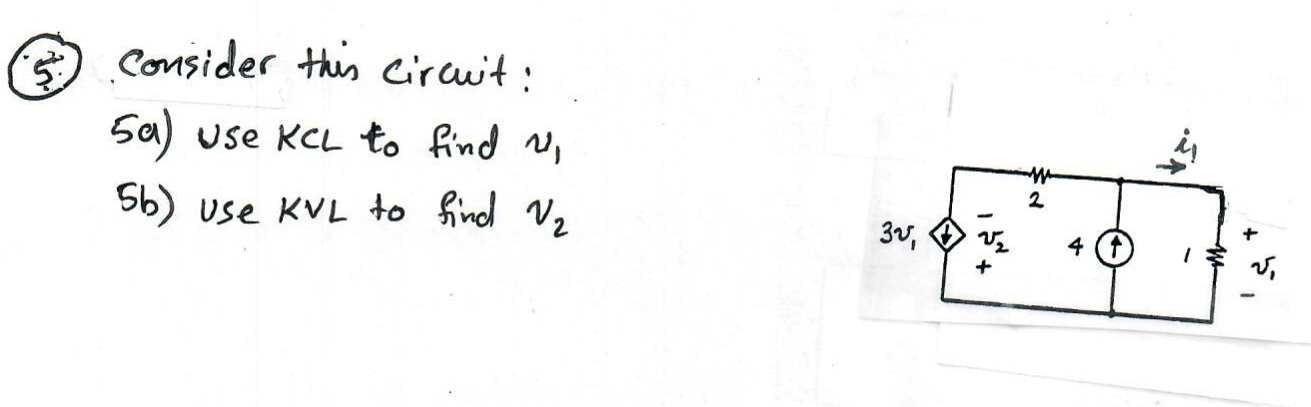 5. Consider this circuit:
5a) use KCL to find v₁
5b) use KVL to find v₂
i₁
2
3v₁
- v₂ +
4
1
+ v₁ -